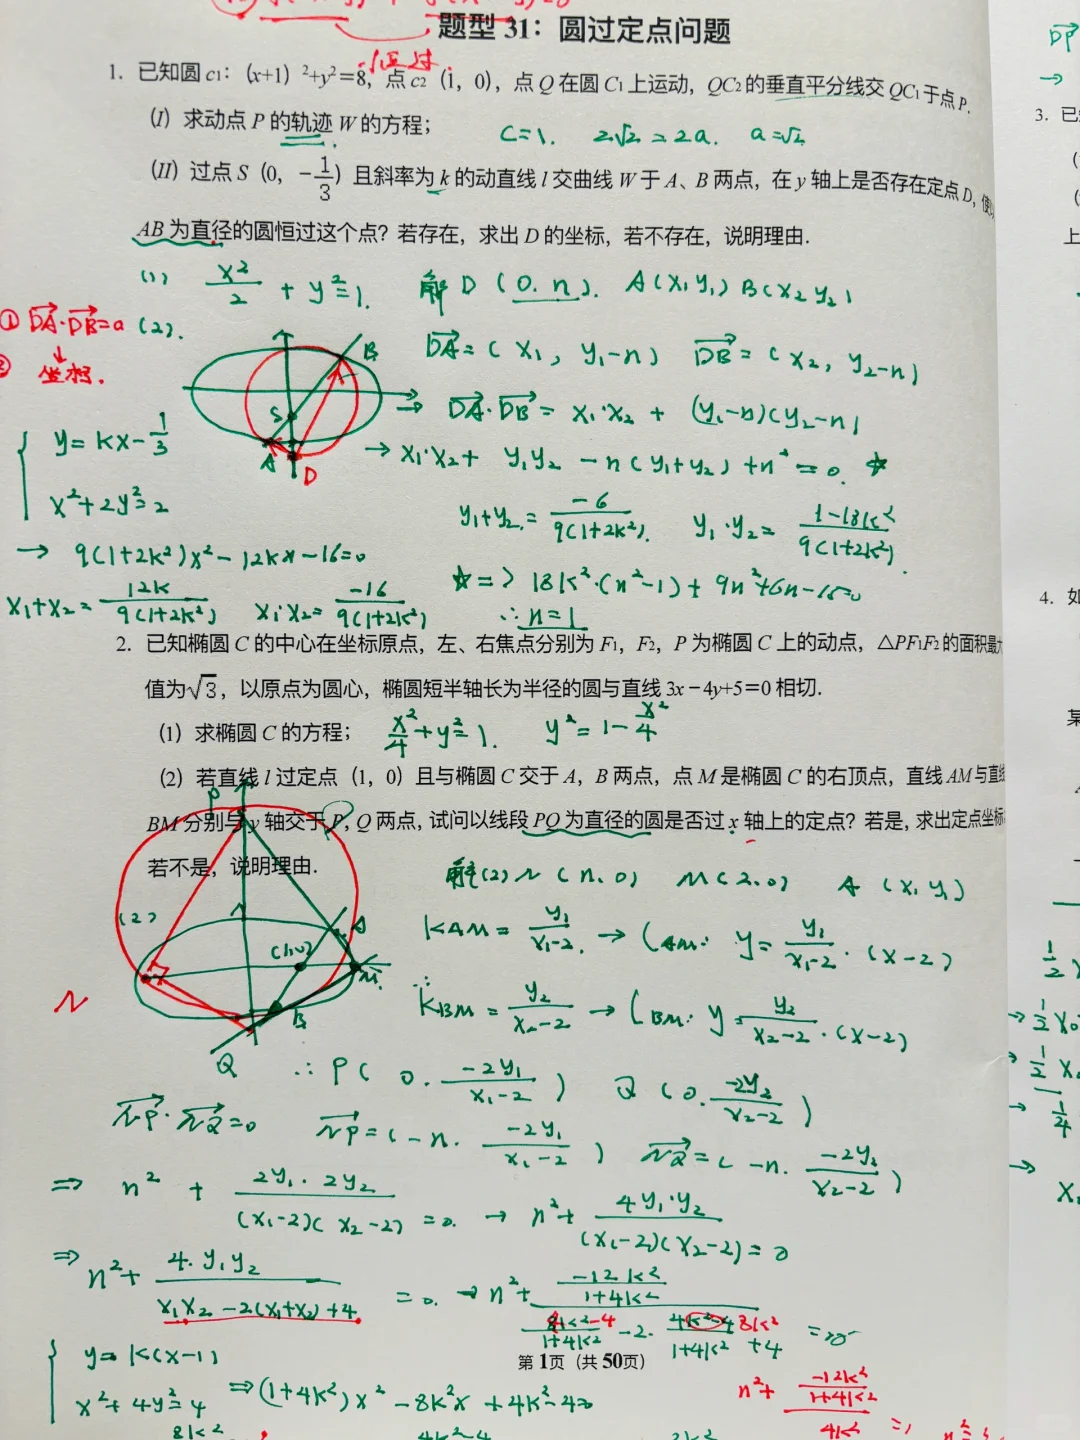 题型 31：圆过定点问题
恒过
1. 已知圆c₁：(x+1)²+y²=8，点c₂（1，0），点 Q 在圆 C₁上运动，QC₂的垂直平分线交 QC₁于点 P.
(I) 求动点 P 的轨迹 W 的方程；
c=1. 2√2=2a. a=√2
(II) 过点 S（0，-1/3）且斜率为 k 的动直线 l 交曲线 W 于 A、B 两点，在 y 轴上是否存在定点 D，使
AB 为直径的圆恒过这个点？若存在，求出 D 的坐标，若不存在，说明理由.
(1) x²/2 + y²=1. 解 D (0. n). A(x₁ y₁) B(x₂ y₂)
① DA·DB=0 (2).
坐标.
B
S
A
D
DA=(x₁, y₁-n) DB=(x₂, y₂-n)
→ DA·DB = x₁·x₂ + (y₁-n)(y₂-n)
→ x₁·x₂+ y₁y₂ -n(y₁+y₂)+n²=0. ☆
y=kx-1/3
x²+2y²=2
y₁+y₂=-6/9(1+2k²). y₁·y₂=1-18k²/9(1+2k²).
→ 9(1+2k²)x²-12kx-16=0
☆=> 18k²·(n²-1)+9n²+6n-15=0
x₁+x₂=12k/9(1+2k²) x₁·x₂=-16/9(1+2k²)
∴n=1
2. 已知椭圆 C 的中心在坐标原点，左、右焦点分别为 F₁，F₂，P 为椭圆 C 上的动点，△PF₁F₂的面积最大
值为√3，以原点为圆心，椭圆短半轴长为半径的圆与直线 3x－4y+5＝0 相切.
(1) 求椭圆 C 的方程； x²/4+y²=1. y²=1-x²/4
(2) 若直线 l 过定点（1，0）且与椭圆 C 交于 A，B 两点，点 M 是椭圆 C 的右顶点，直线 AM 与直线
BM 分别与 y 轴交于 P，Q 两点，试问以线段 PQ 为直径的圆是否过 x 轴上的定点？若是，求出定点坐标
若不是，说明理由.
P
(2)
A
(1,0)
M.
B
N
Q
解(2) N(n,0) M(2,0) A(x₁ y₁)
KAM=y₁/x₁-2. → lAM: y=y₁/x₁-2·(x-2)
∴KBM=y₂/x₂-2 → lBM: y=y₂/x₂-2·(x-2)
∴P(0. -2y₁/x₁-2) Q(0. -2y₂/x₂-2)
NP·NQ=0 NP=(-n. -2y₁/x₁-2) NQ=(-n. -2y₂/x₂-2)
=> n²+2y₁·2y₂/(x₁-2)(x₂-2)=0. → n²+4y₁·y₂/(x₁-2)(x₂-2)=0
=> n²+4·y₁y₂/x₁x₂-2(x₁+x₂)+4=0.
y=k(x-1)
x²+4y²=4 =>(1+4k²)x²-8k²x+4k²-4=0
第 1页（共 50页）
3. 已
上
4. 如
某